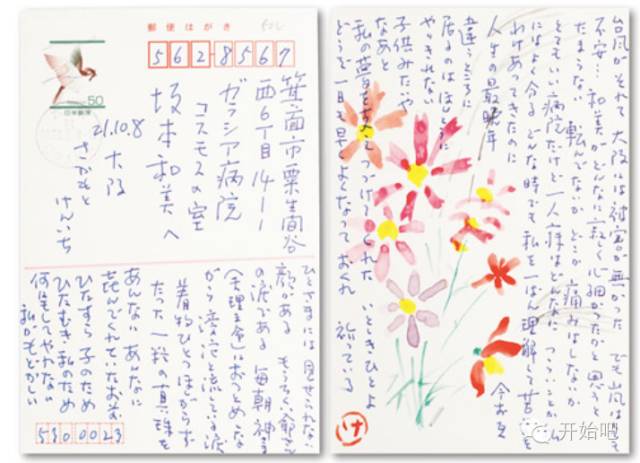 郵便はがき
562-8567
50
日本郵便
箕面市粟生間谷
西6丁目14-1
ガラシア病院
コスモスの室
坂本和美へ
21.10.8 大阪
さかもと
けんいち
ひとさまには見せられない
顔がある
の涙である 毎朝神様
がら 流している涙
着物ひとつほしがらず
たった一粒の真珠を
あんなに あんなに
喜んでくれていたお前
ひたすら子のため
ひたむき私のため
何にもしてやれない
私がもどかしい
530 0023
台風がそれて大阪には被害が無かった でも
不安… 和美がどんなに寂しく心細かったかと思うと
たまらない 転んでないか どこか痛みはしないか
とてもいい病院だけど一人病はどんなにつらいことか
にはよく今るどんな時でも私を一ばん理解して苦
わけあってきたのに
人生の最晩年
違うところに
居るのはほんとうに
やりきれない
子供みたいや
なあと
私の夢を つづけてくれた いとしきひとよ
どうぞ一日も早くよくなっておくれ 祈っている
け
开始吧